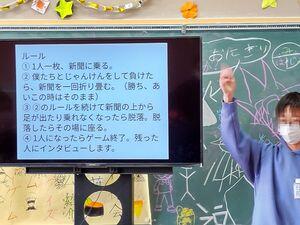 ルール
①1人一枚、新聞に乗る。
②僕たちとじゃんけんをして負けた
ら、新聞を一回折り畳む。（勝ち、あ
いこの時はそのまま）
③②のルールを続けて新聞の上から
足が出たり乗れなくなったら脱落。脱
落したらその場に座る。
④1人になったらゲーム終了。残った
人にインタビューします。
おにぎり